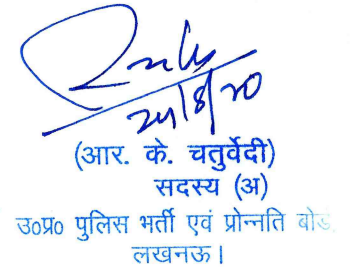 24/8/20
(आर. के. चतुर्वेदी)
सदस्य (अ)
उ०प्र० पुलिस भर्ती एवं प्रोन्नति बोर्ड,
लखनऊ।